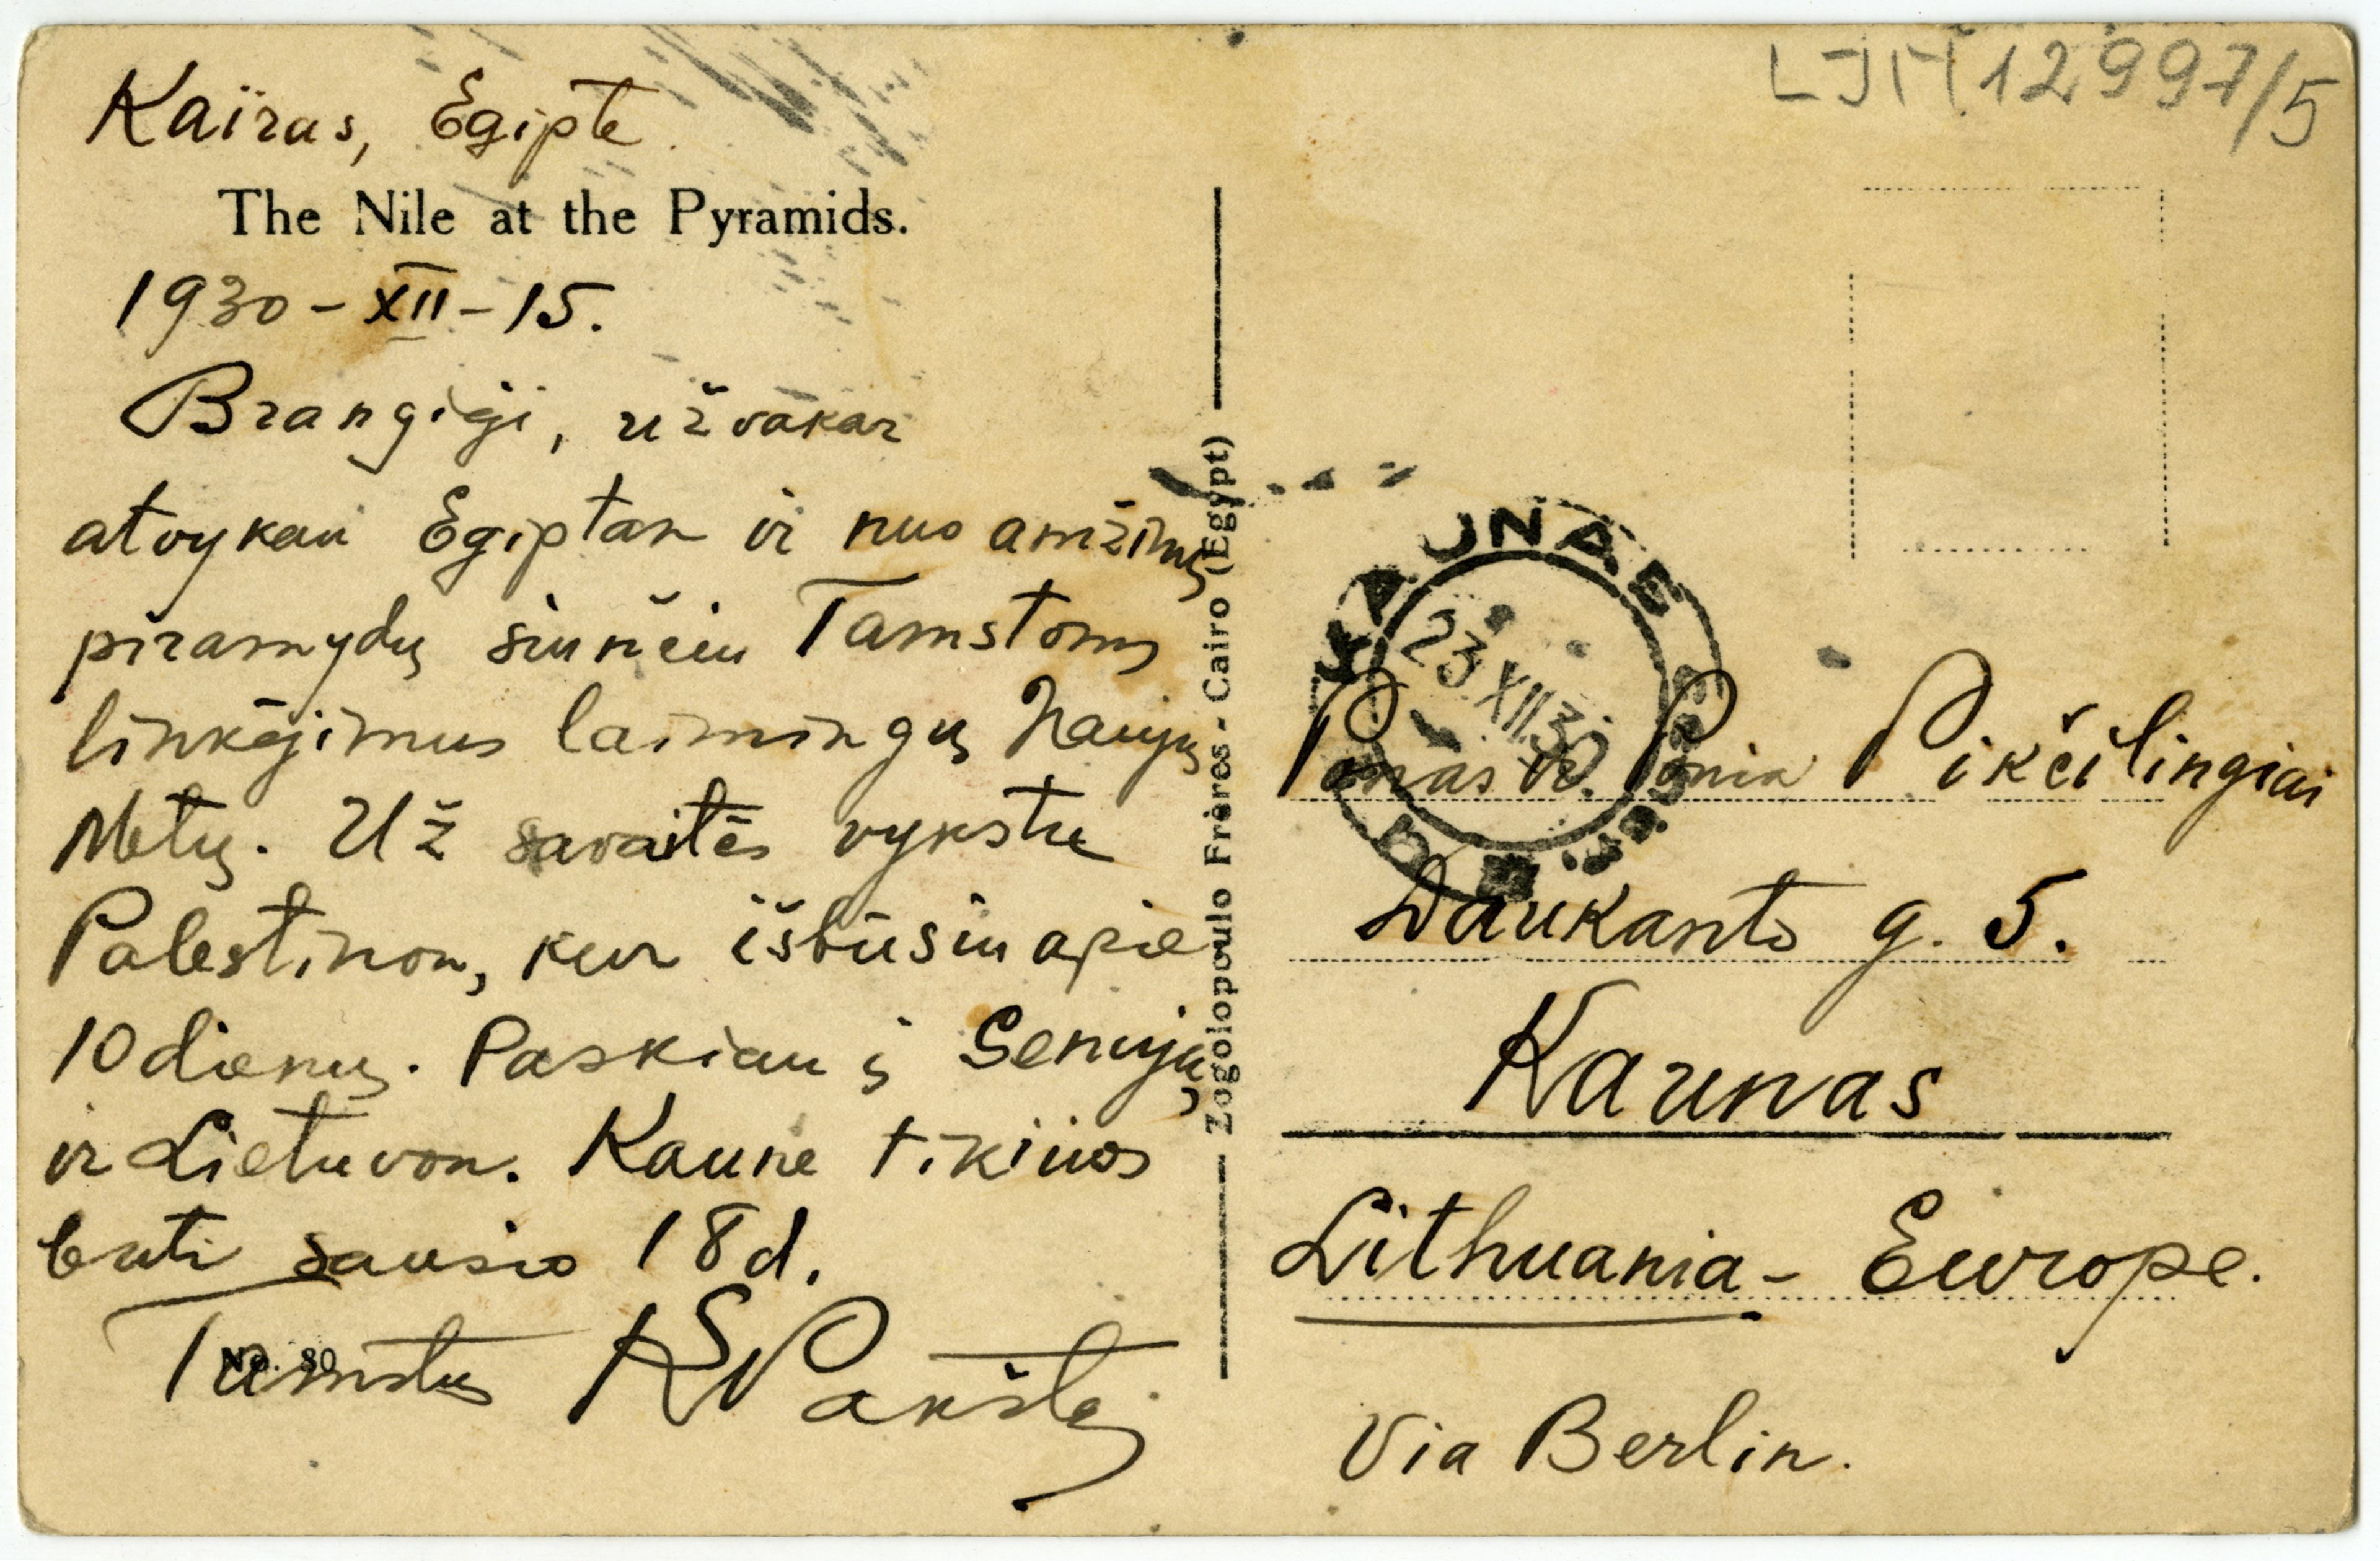 LJM 12997/5
Kaïras, Egipte.
The Nile at the Pyramids.
1930-XII-15.
Brangieji, užvakar
atvykau Egiptan ir nuo amžinų
piramydų siunčiu Tamstoms
linkėjimus laimingų Naujų
Metų. Už savaitės vykstu
Palestinon, kur išbūsiu apie
10 dienų. Paskiau į Seniją
ir Lietuvon. Kaune tikiuos
buti sausio 18 d.
Tamstų KPakštas
No. 80
Zogolopoulo Frères - Cairo (Egypt)
KAUNAS
23 XII 30
Ponas ir Ponia Pikčilingiai
Daukanto g. 5.
Kaunas
Lithuania - Europe.
Via Berlin.